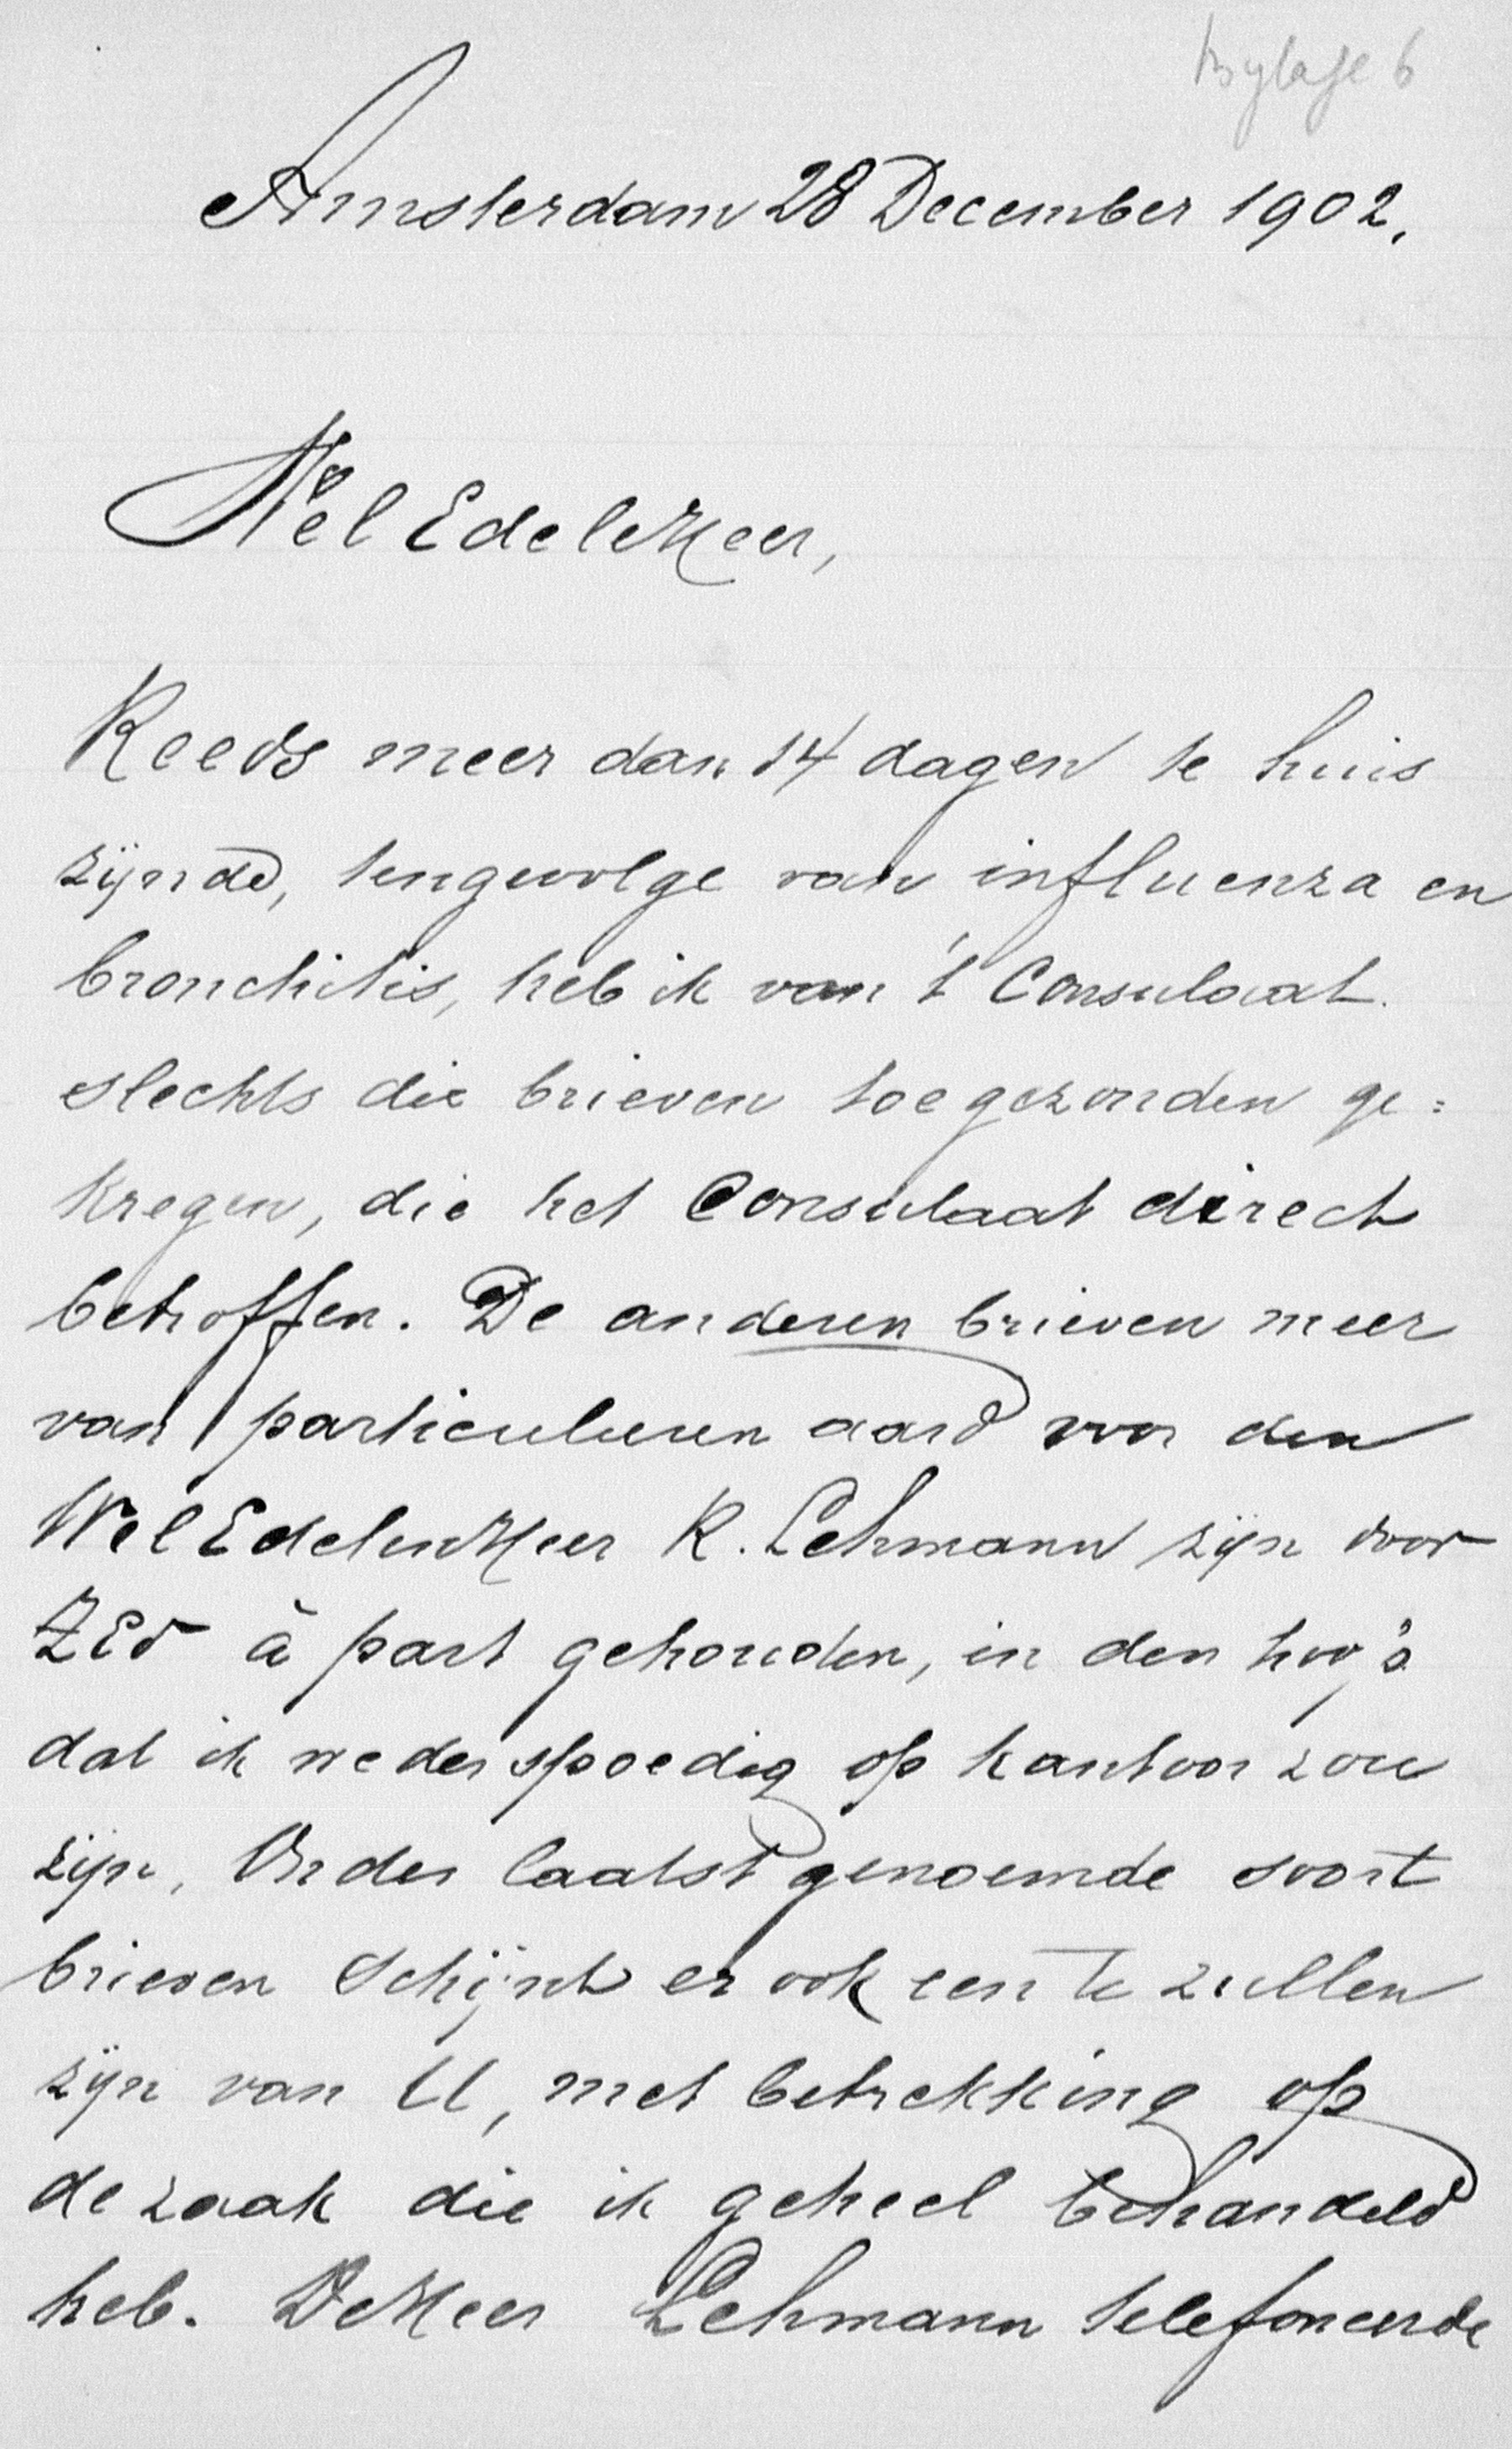 Bylage 6
Amsterdam 28 December 1902.
WelEdeleHeer,
Reeds meer dan 14 dagen te huis
zijnde, tengevolge van influenza en
bronchitis, heb ik van 't Consulaat
slechts die brieven toegezonden ge=
kregen, die het Consulaat direct
betroffen. De anderen brieven meer
van particulieren aard voor den
WelEdelenHeer R. Lehmann zijn voor
ZEd à part gehouden, in den hoop
dat ik weder spoedig op kantoor zou
zijn. Onder laatstgenoemde soort
brieven schijnt er ook een te zullen
zijn van U, met betrekking op
de zaak die ik geheel behandeld
heb. DeHeer Lehmann telefoneerde